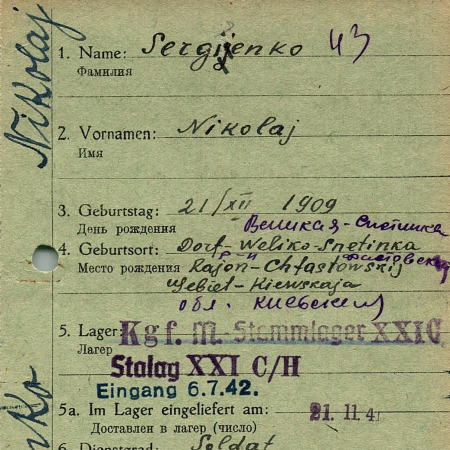 Nikolaj
1. Name: Sergijenko 43
Фамилия
2. Vornamen: Nikolaj
Имя
3. Geburtstag: 21/XII 1909
День рождения Великая-Снетинка
4. Geburtsort: Dorf-Weliko-Snetinka
Место рождения Rajon-Chfastowskij р-н Фастовский
Gebiet-Kiewskaja
обл. Киевская
5. Lager: Kgf. M.-Stammlager XXIC
Лагерь
Stalag XXI C/H
Eingang 6.7.42.
5a. Im Lager eingeliefert am: 21. 11. 41
Доставлен в лагерь (число)
6. Dienstgrad: Soldat
nko